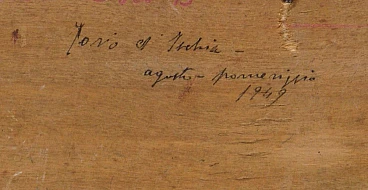 Forio d'Ischia -
agosto - pomeriggio
1949